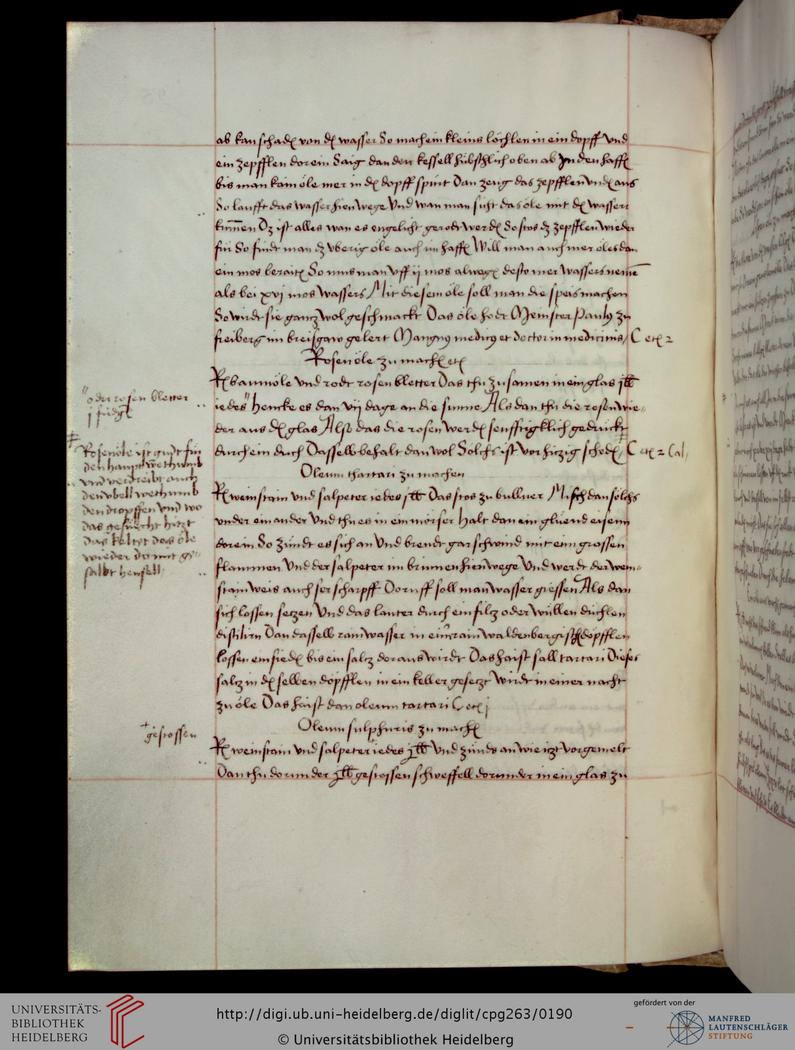 ab kan schad von d wasser So mach ein kleins löchlen in ein dopff und
ein zepfflen dorein Saig dan den kessell hübschlich oben ab In den haff
bis man kain öle mer in d dopff spürt Dan zeug das zepfflen und aus
So laufft das wasser hienwege Und wan man sicht das öle mit d wasser
kumen Dz ist alles wan es engelicht gerodt werd So stos dz zepfflen wieder
für So findt man dz uberig öle auch im haff Will man auch mer öles dan
ein mos berait So mus man uff ij mos alweg desto mer wassers neme
als bei xvj mos wassers Mit diesem öle soll man die speis machen
So wirdt sie gantz wol geschmackt Das öle hadt Meinster Paulus zu
freiberg im breisgaw gelert Mangnus medicus et doctor in medicinis / C etc 2
Rosen öle zu mach etc
R baumöle und rodt rosen bletter Das thu zusamen in ein glas j lb
iedes Hencke es dan vij dage an die sunne Als dan thu die rosen wie
der aus d glas Alß das die rosen werd senfftigklich gedruckt
durch ein duch Dasselb behalt dan wol Solchs ist vor hitzig sched / C etc 2 Cal
Oleum thartari zu machen
R weinstain und salpeter iedes j lb Das stos zu bulluer Misch dan solchs
under ein ander Und thu es in ein mörser Halt dan ein glüend eisenn
dorein So zündt es sich an Und brendt gar schwind mit einn grossen
flammen Und der salpeter im brinnen hienwege Und werdt der wein
stain weis auch ser scharpff Doruff soll man wasser giessen Als dan
sich lossen setzen Und das lauter durch ein filz oder wüllen düchlen
distilirn Dan dassell rain wasser in eim rain waldenbergisch döpfflen
lossen einsied bis ein saltz doraus wirdt Das haist sall tartari Dieses
saltz in d selben döpfflen in ein keller gesetzt Wirdt in einer nacht
zu öle Das haist dan oleum tartari C etc j
Oleum sulphuris zu mach
R weinstain Und salpeter iedes j lb Und zünds an wie izt vorgemelt
Dan thu dorunder j lb gestossen schweffell dorunder in ein glas zu
oder rosen bletter
Rosenöle ist gudt für
den haupt wethumb
und verdreibt auch
den ubell wethumb
den dropffen und wo
das gesücht hitzt
das keltet das öle
wieder do mit ge
salbt
gestossen
UNIVERSITÄTS-
BIBLIOTHEK
HEIDELBERG
http://digi.ub.uni-heidelberg.de/diglit/cpg263/0190
© Universitätsbibliothek Heidelberg
gefördert von der
MANFRED
LAUTENSCHLÄGER
STIFTUNG